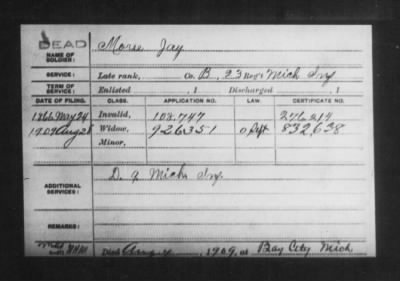 DEAD
NAME OF SOLDIER: Morse Jay
SERVICE: Late rank, Co. B, 23 Reg't Mich Inf
TERM OF SERVICE: Enlisted , 1 Discharged , 1
DATE OF FILING. CLASS. APPLICATION NO. LAW. CERTIFICATE NO.
1866 May 24 Invalid, 108.747 276.414
1909 Aug 28 Widow, 926351 832,638
Minor,
ADDITIONAL SERVICES: D. 9 Mich Inf.
REMARKS:
Died Aug , 1909, at Bay City Mich